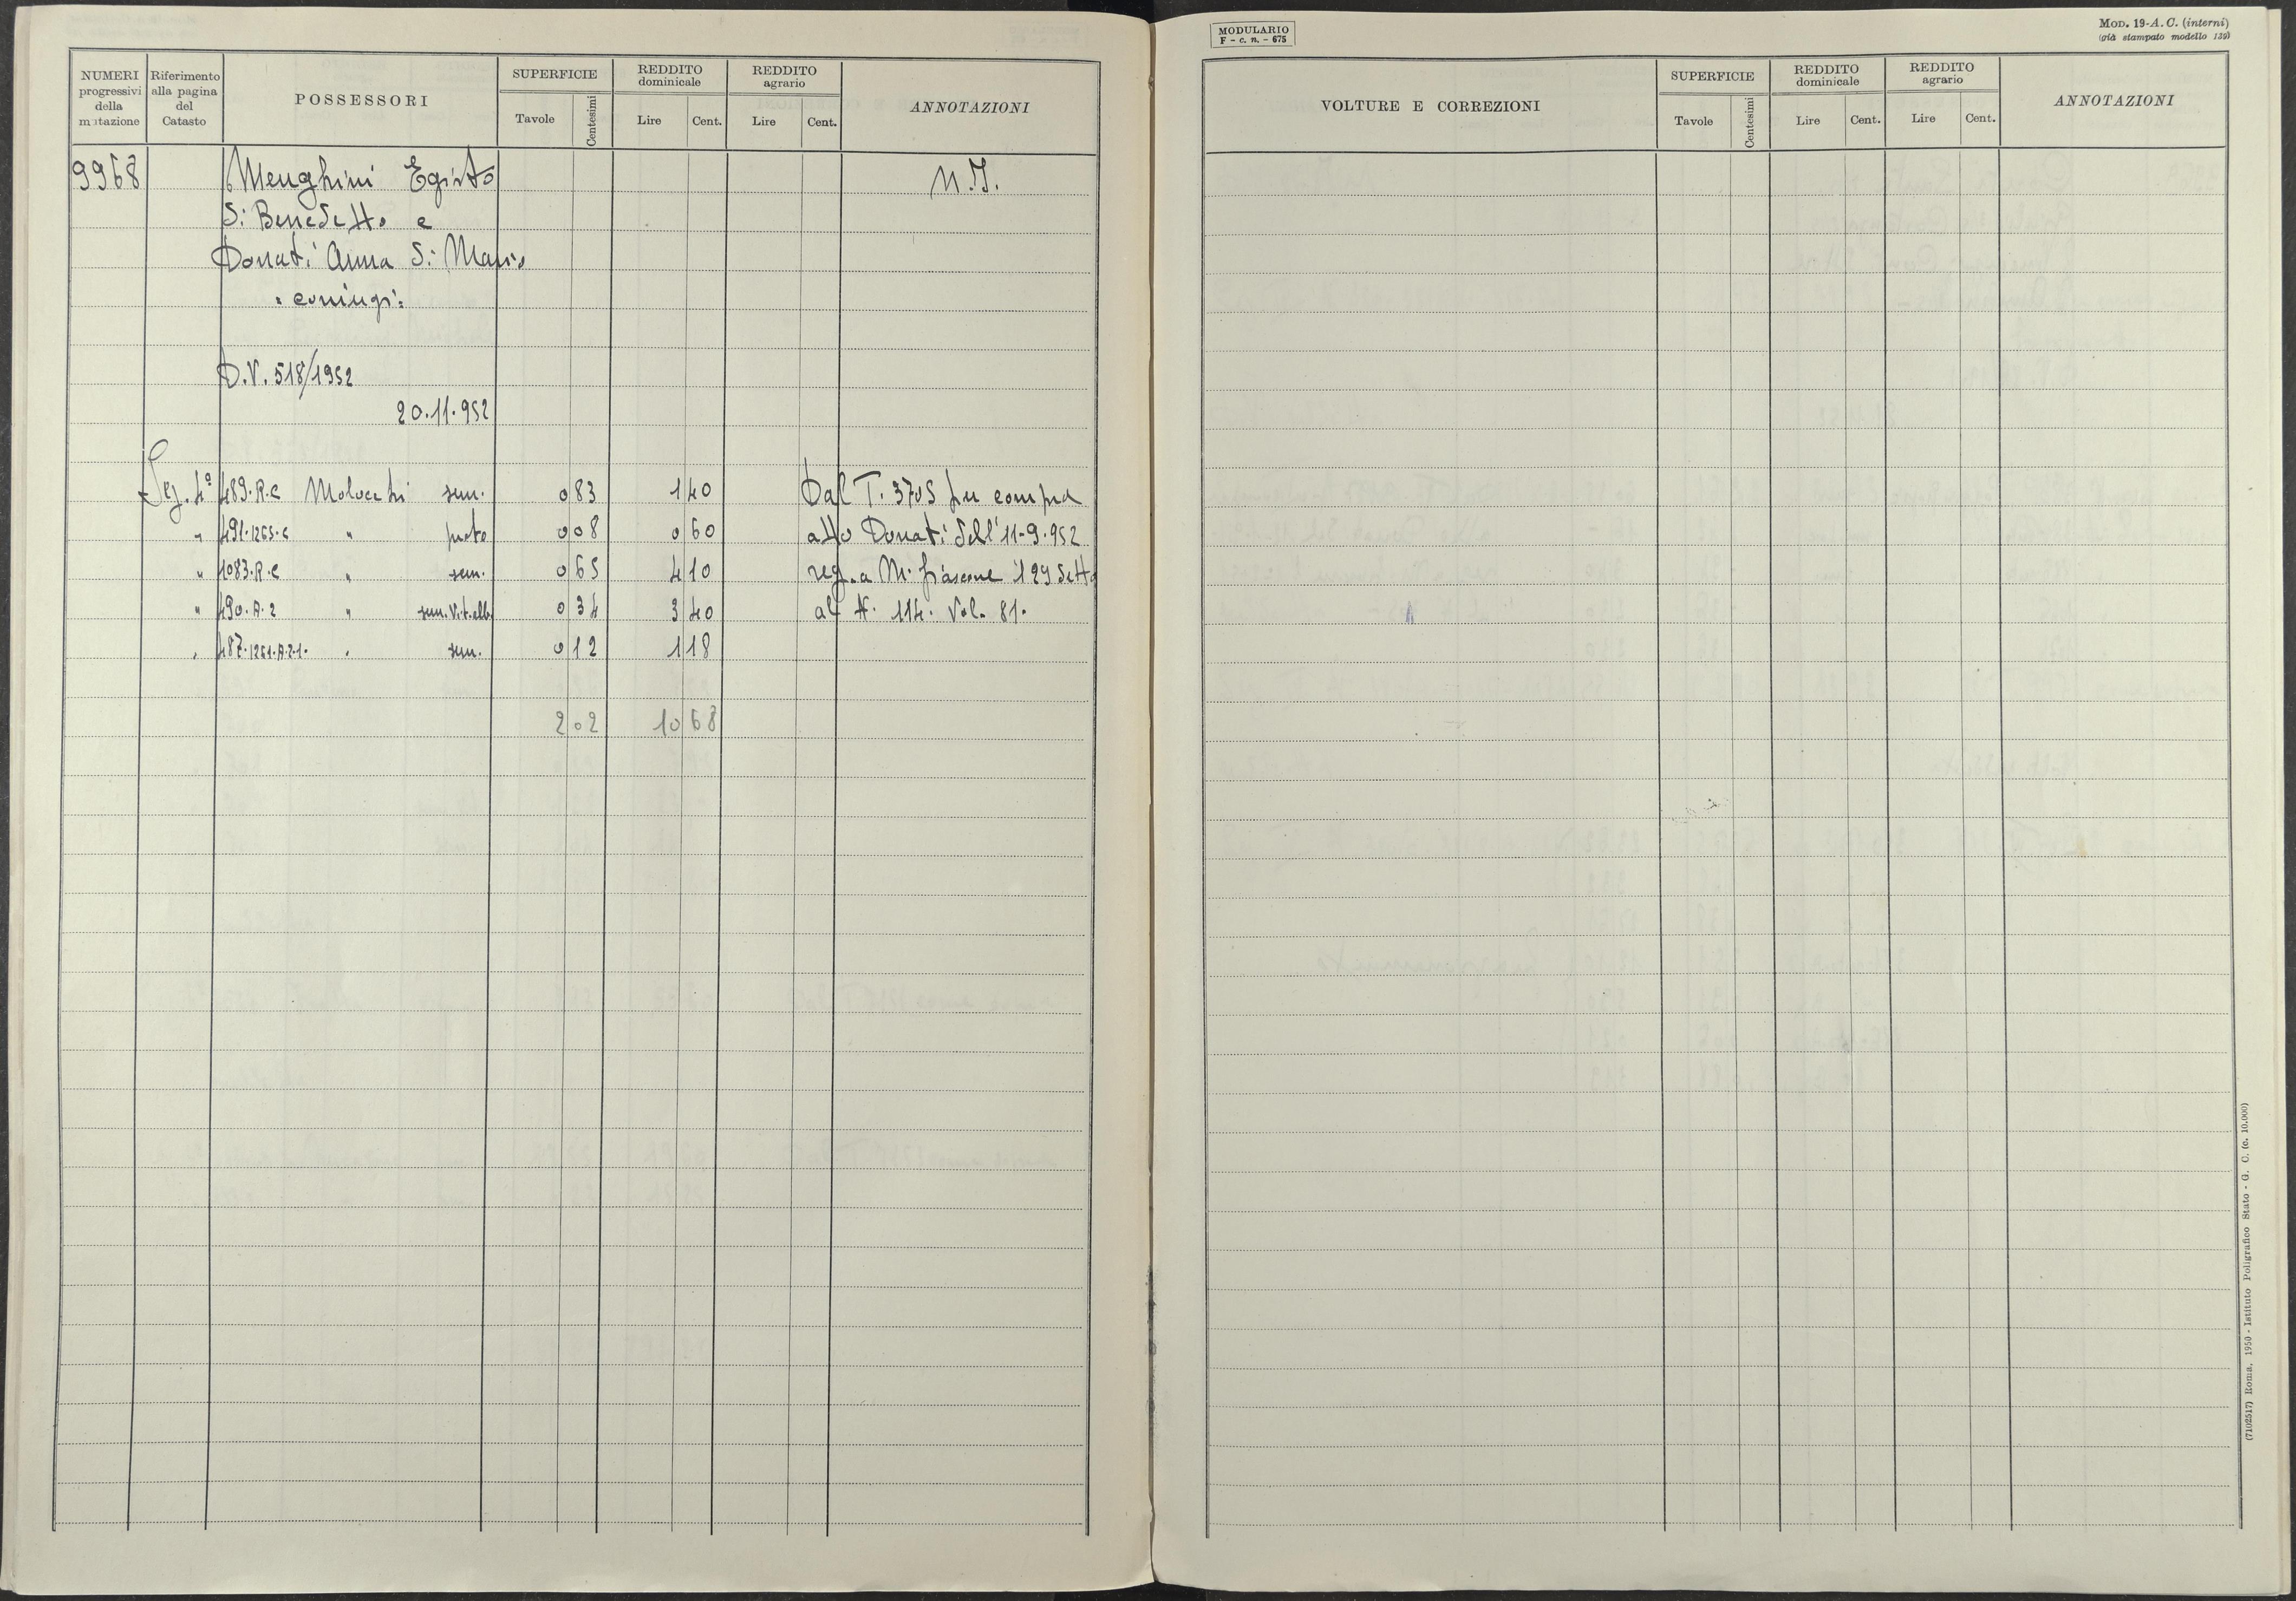 NUMERI progressivi della mutazione | Riferimento alla pagina del Catasto | POSSESSORI | SUPERFICIE Tavole Centesimi | REDDITO dominicale Lire Cent. | REDDITO agrario Lire Cent. | ANNOTAZIONI
9968 Menghini Egisto N.I.
di Benedetto e
Donati Anna di Mario
coniugi:
D.V. 518/1952
20.11.952
Sez. 4ª 489.R.C Molocchi sem. 0 83 1 40 Dal T. 3705 per compra
" 491.1265.C " prato 0 08 0 60 atto Donati dell'11-9-952
" 1083.R.C " sem. 0 65 4 10 reg. a M. fiascone il 29 detto
" 490.A.2 " sem.vit.alb. 0 34 3 40 al N. 114. Vol. 81.
" 487.1261.A.2.1. " sem. 0 12 1 18
2 02 10 68
MODULARIO
F - c. n. - 675
MOD. 19-A. C. (interni)
(già stampato modello 139)
VOLTURE E CORREZIONI | SUPERFICIE Tavole Centesimi | REDDITO dominicale Lire Cent. | REDDITO agrario Lire Cent. | ANNOTAZIONI
(7102517) Roma, 1950 - Istituto Poligrafico Stato - G. C. (c. 10.000)